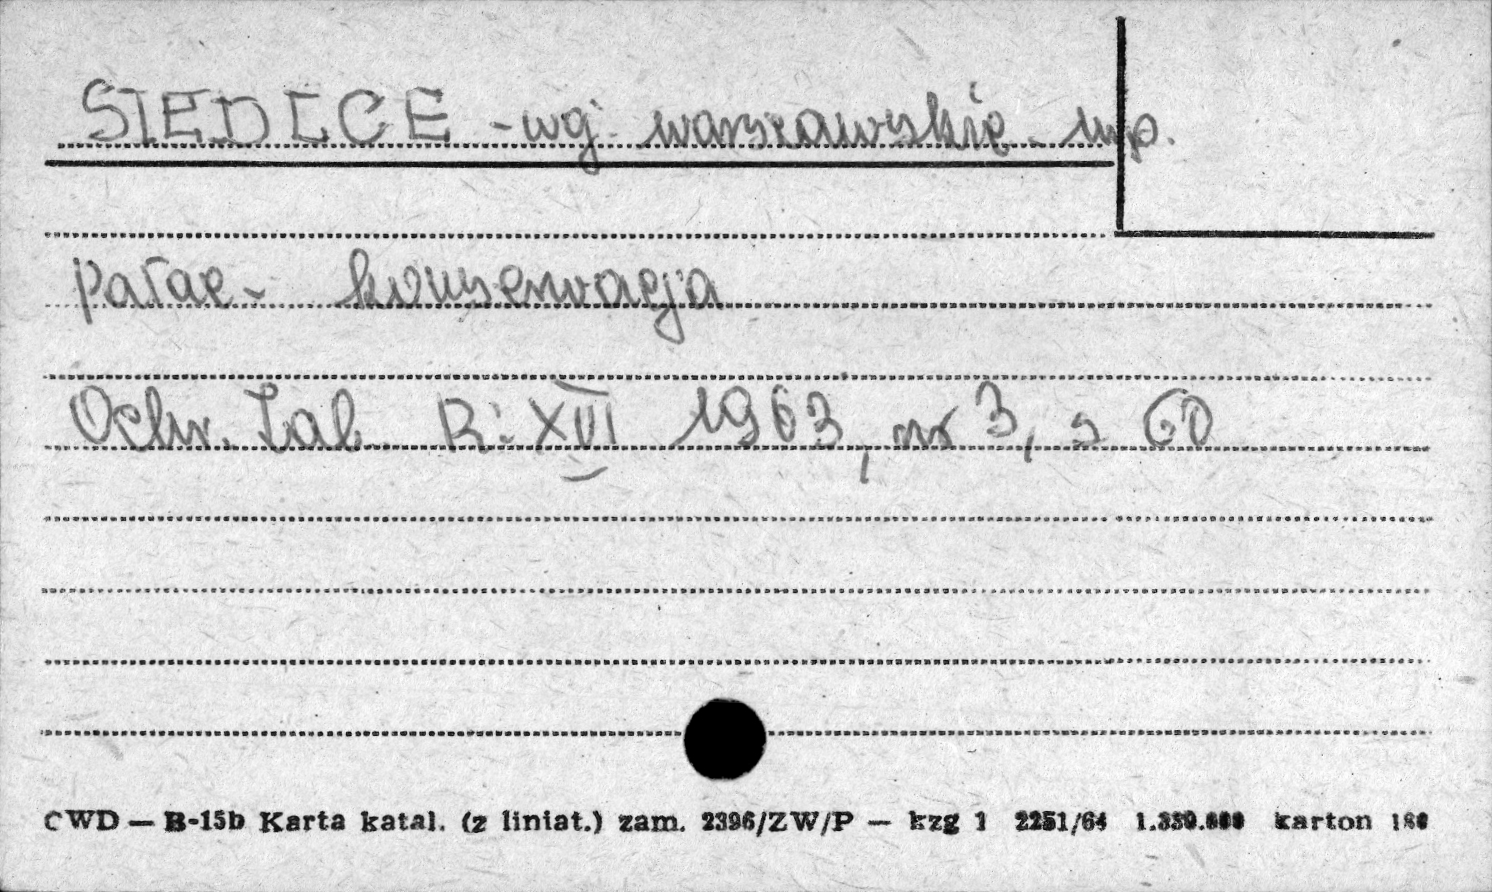 SIEDLCE - woj. warszawskie m.p.
pałac - konserwacja
Ochr. Zab. R: XVI 1963, nr 3, s 60
CWD — B-15b Karta katal. (z liniat.) zam. 2396/ZW/P — kzg 1 2251/64 1.330.000 karton 180